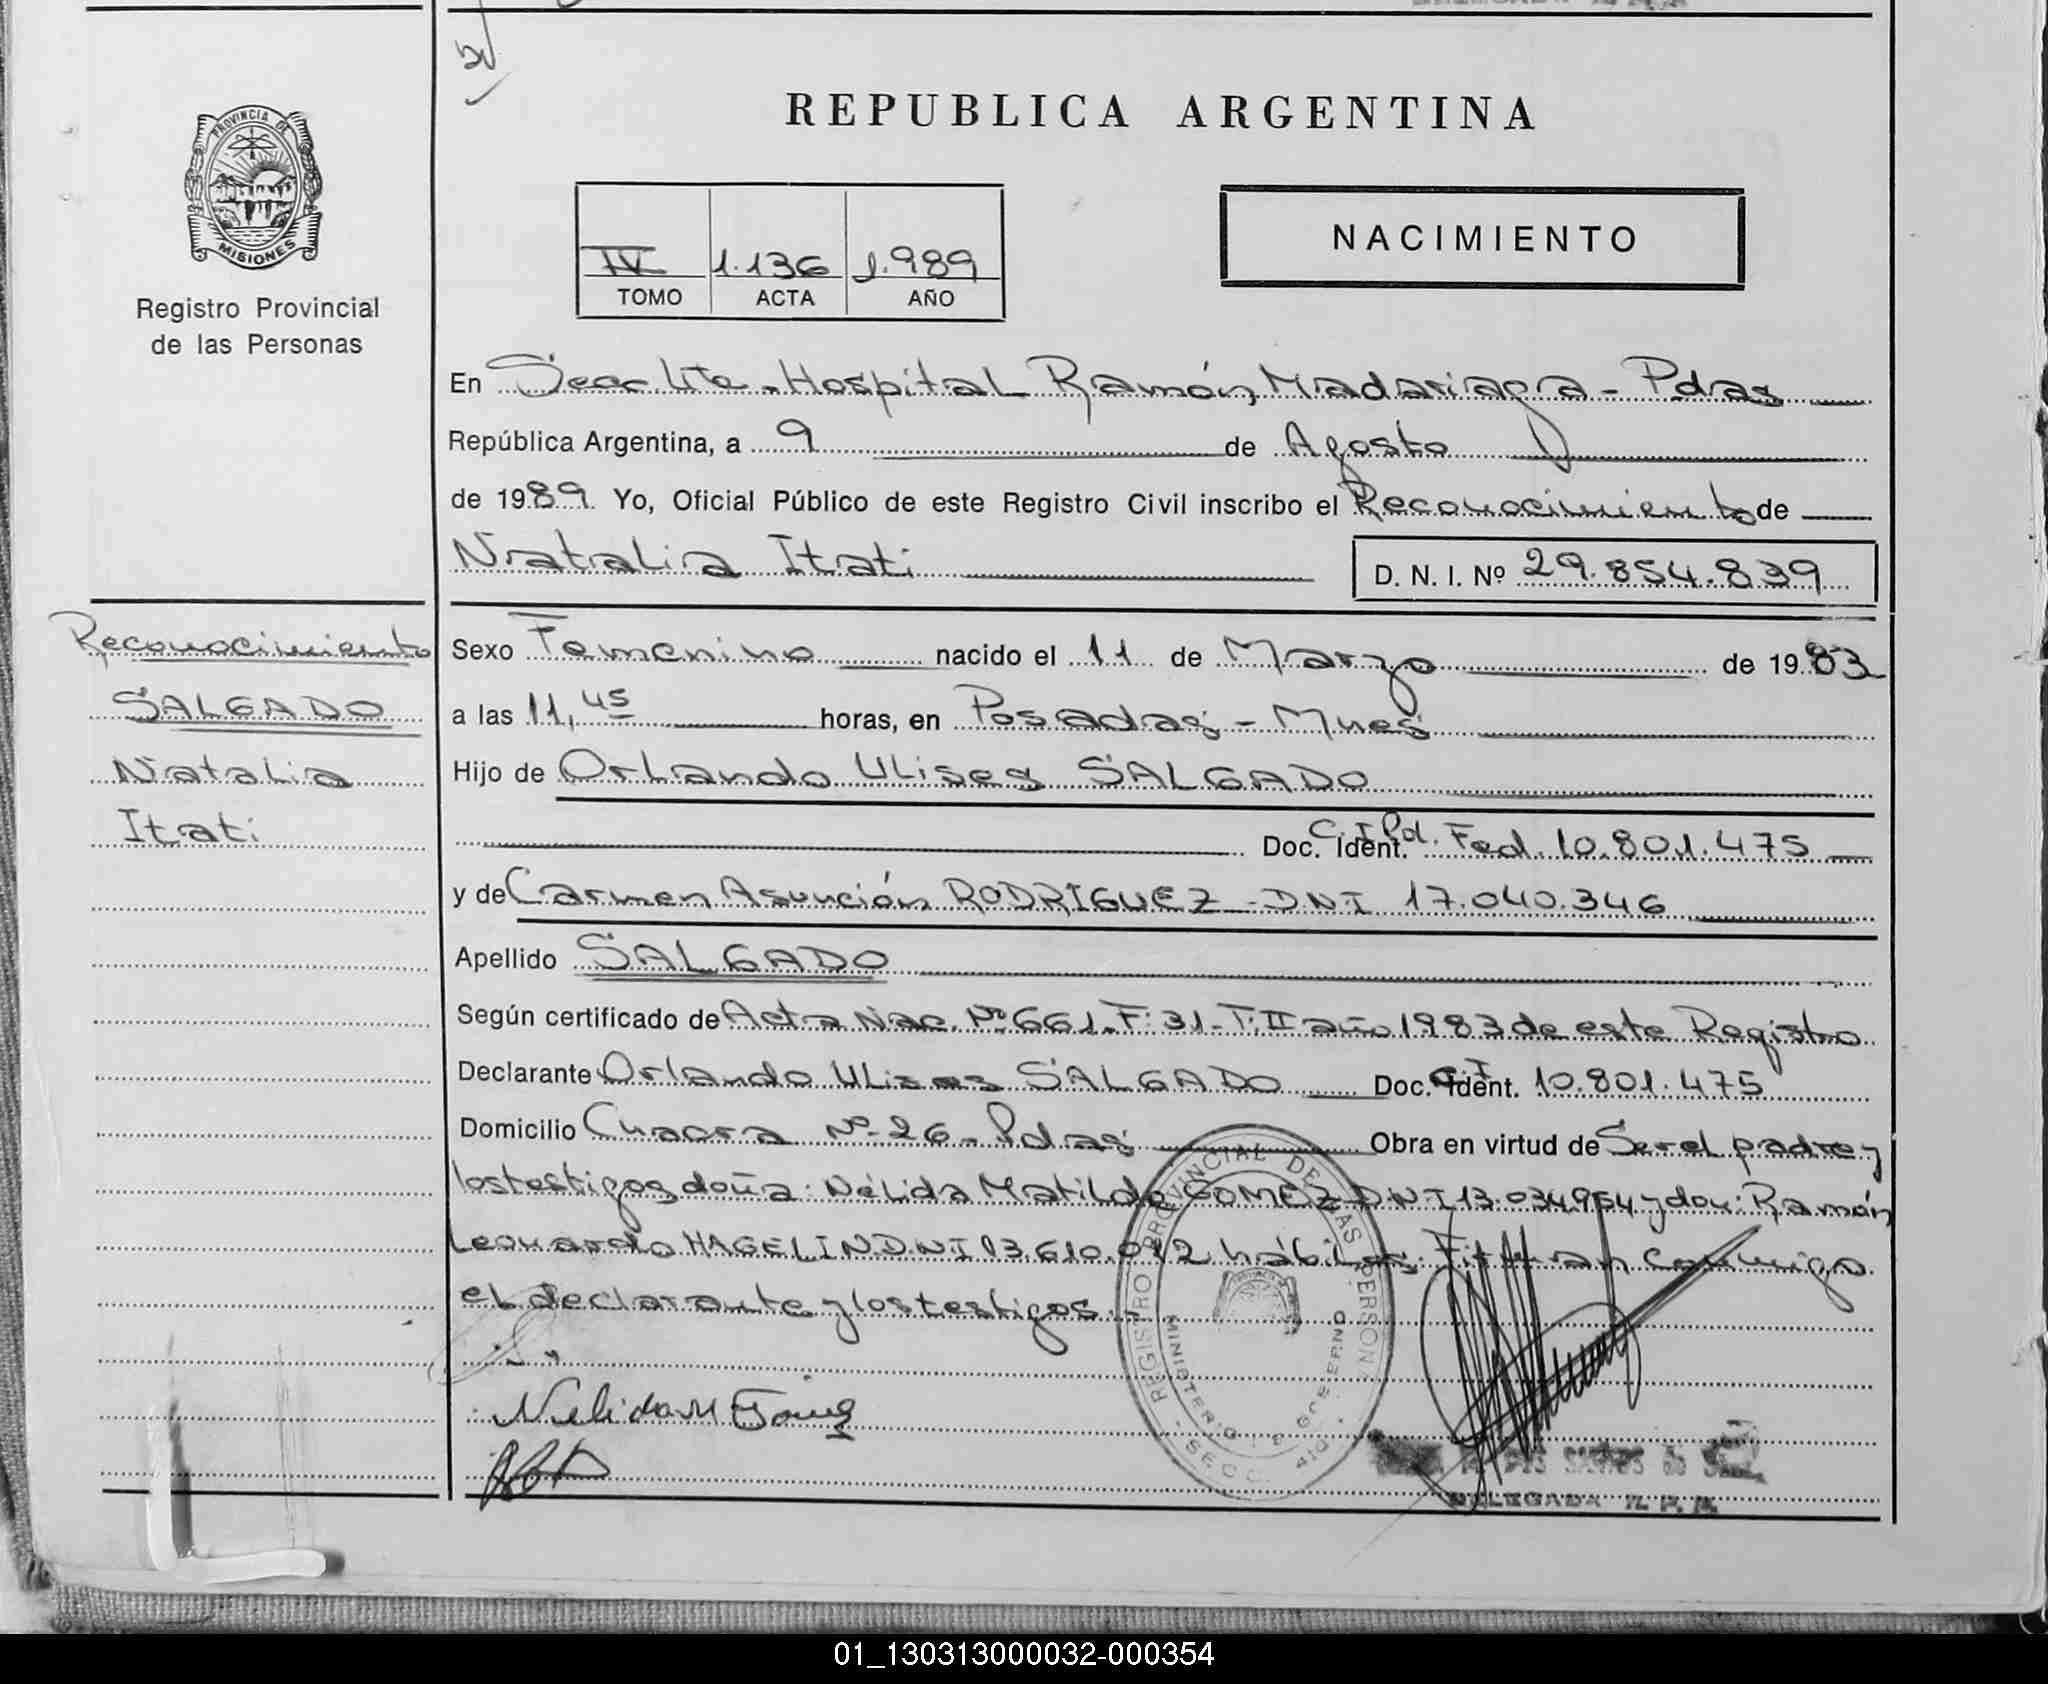 REPUBLICA ARGENTINA
PROVINCIA DE
MISIONES
Registro Provincial
de las Personas
IV 1.136 1.989
TOMO ACTA AÑO
NACIMIENTO
En Secc Ute. Hospital Ramón Madariaga - Pdas
República Argentina, a 9 de Agosto
de 1989. Yo, Oficial Público de este Registro Civil inscribo el Reconocimiento de
Natalia Itati
D. N. I. Nº 29.854.839
Reconocimiento
SALGADO
Natalia
Itati
Sexo Femenino nacido el 11 de Marzo de 1983
a las 11,45 horas, en Posadas - Mnes
Hijo de Orlando Ulises SALGADO
Doc. Ident. C.I. Pol. Fed. 10.801.475
y de Carmen Asunción RODRIGUEZ - DNI 17.040.346
Apellido SALGADO
Según certificado de Acta Nac. Nº 661. F: 31 - T: II año 1983 de este Registro
Declarante Orlando Ulises SALGADO Doc. Ident. C.I 10.801.475
Domicilio Chacra Nº 26 - Pdas Obra en virtud de Ser el padre y
los testigos doña: Nélida Matilde GOMEZ DNI 13.034.954 y don: Ramón
Leonardo HAGELIN DNI 13.610.012 hábiles. Firman conmigo
el declarante y los testigos.-
REGISTRO PROVINCIAL DE LAS PERSON
MINISTERIO DE GOBIERNO
SECC.
Nelida M Gomez
DELEGADA R. P. P.
01_130313000032-000354